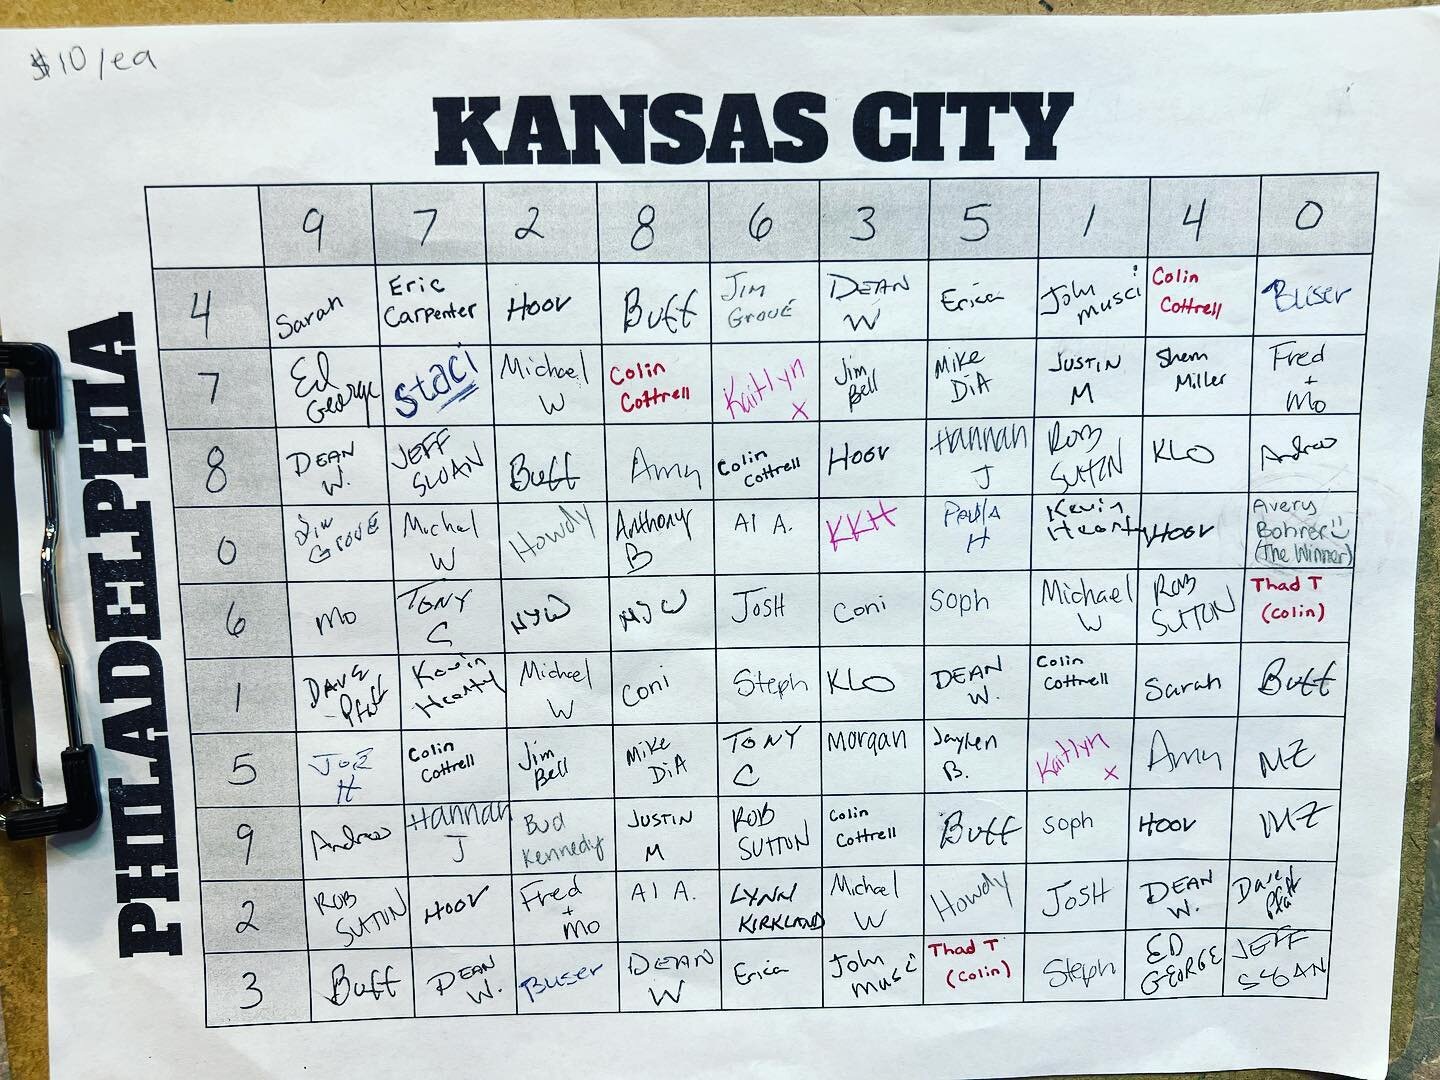 $10/ea
KANSAS CITY
PHILADELPHIA
9 7 2 8 6 3 5 1 4 0
4 Sarah Eric Carpenter Hoov Buff Jim Grove DEAN W Erica John Musci Colin Cottrell Buser
7 Ed George Staci Michael W Colin Cottrell Kaitlyn x Jim Bell Mike DiA JUSTIN M Shem Miller Fred + Mo
8 DEAN W. JEFF SLOAN Buff Amy Colin Cottrell Hoov Hannah J ROB SUTTON KLO Andrew
0 Jim Grove Michael W Howdy Anthony B Al A. KKH Paula H Kevin Hearty Hoov Avery Bohrer (The Winner)
6 Mo TONY C NYW NYW JOSH Coni Soph Michael W ROB SUTTON Thad T (Colin)
1 DAVE Pfaff Kevin Hearty Michael W Coni Steph KLO DEAN W. Colin Cottrell Sarah Buff
5 JOE H Colin Cottrell Jim Bell Mike DiA TONY C Morgan Jayken B. Kaitlyn x Amy MZ
9 Andrew Hannah J Bud Kennedy JUSTIN M ROB SUTTON Colin Cottrell Buff Soph Hoov MZ
2 ROB SUTTON Hoov Fred + Mo Al A. LYNN KIRKLAND Michael W Howdy JOSH DEAN W. Dave Pfaff
3 Buff DEAN W. Buser DEAN W Erica John Musci Thad T (Colin) Steph ED GEORGE JEFF SLOAN